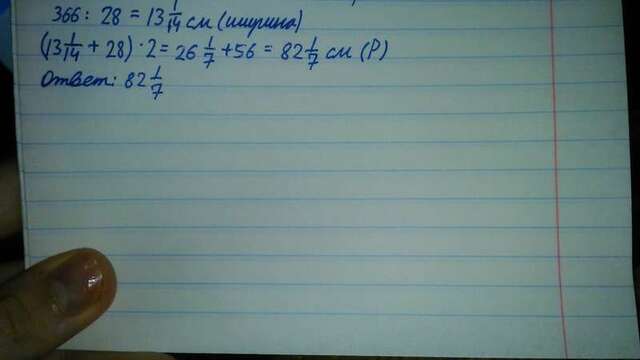 366 : 28 = 13 1/14 см (ширина)
(13 1/14 + 28) · 2 = 26 1/7 + 56 = 82 1/7 см (Р)
Ответ: 82 1/7